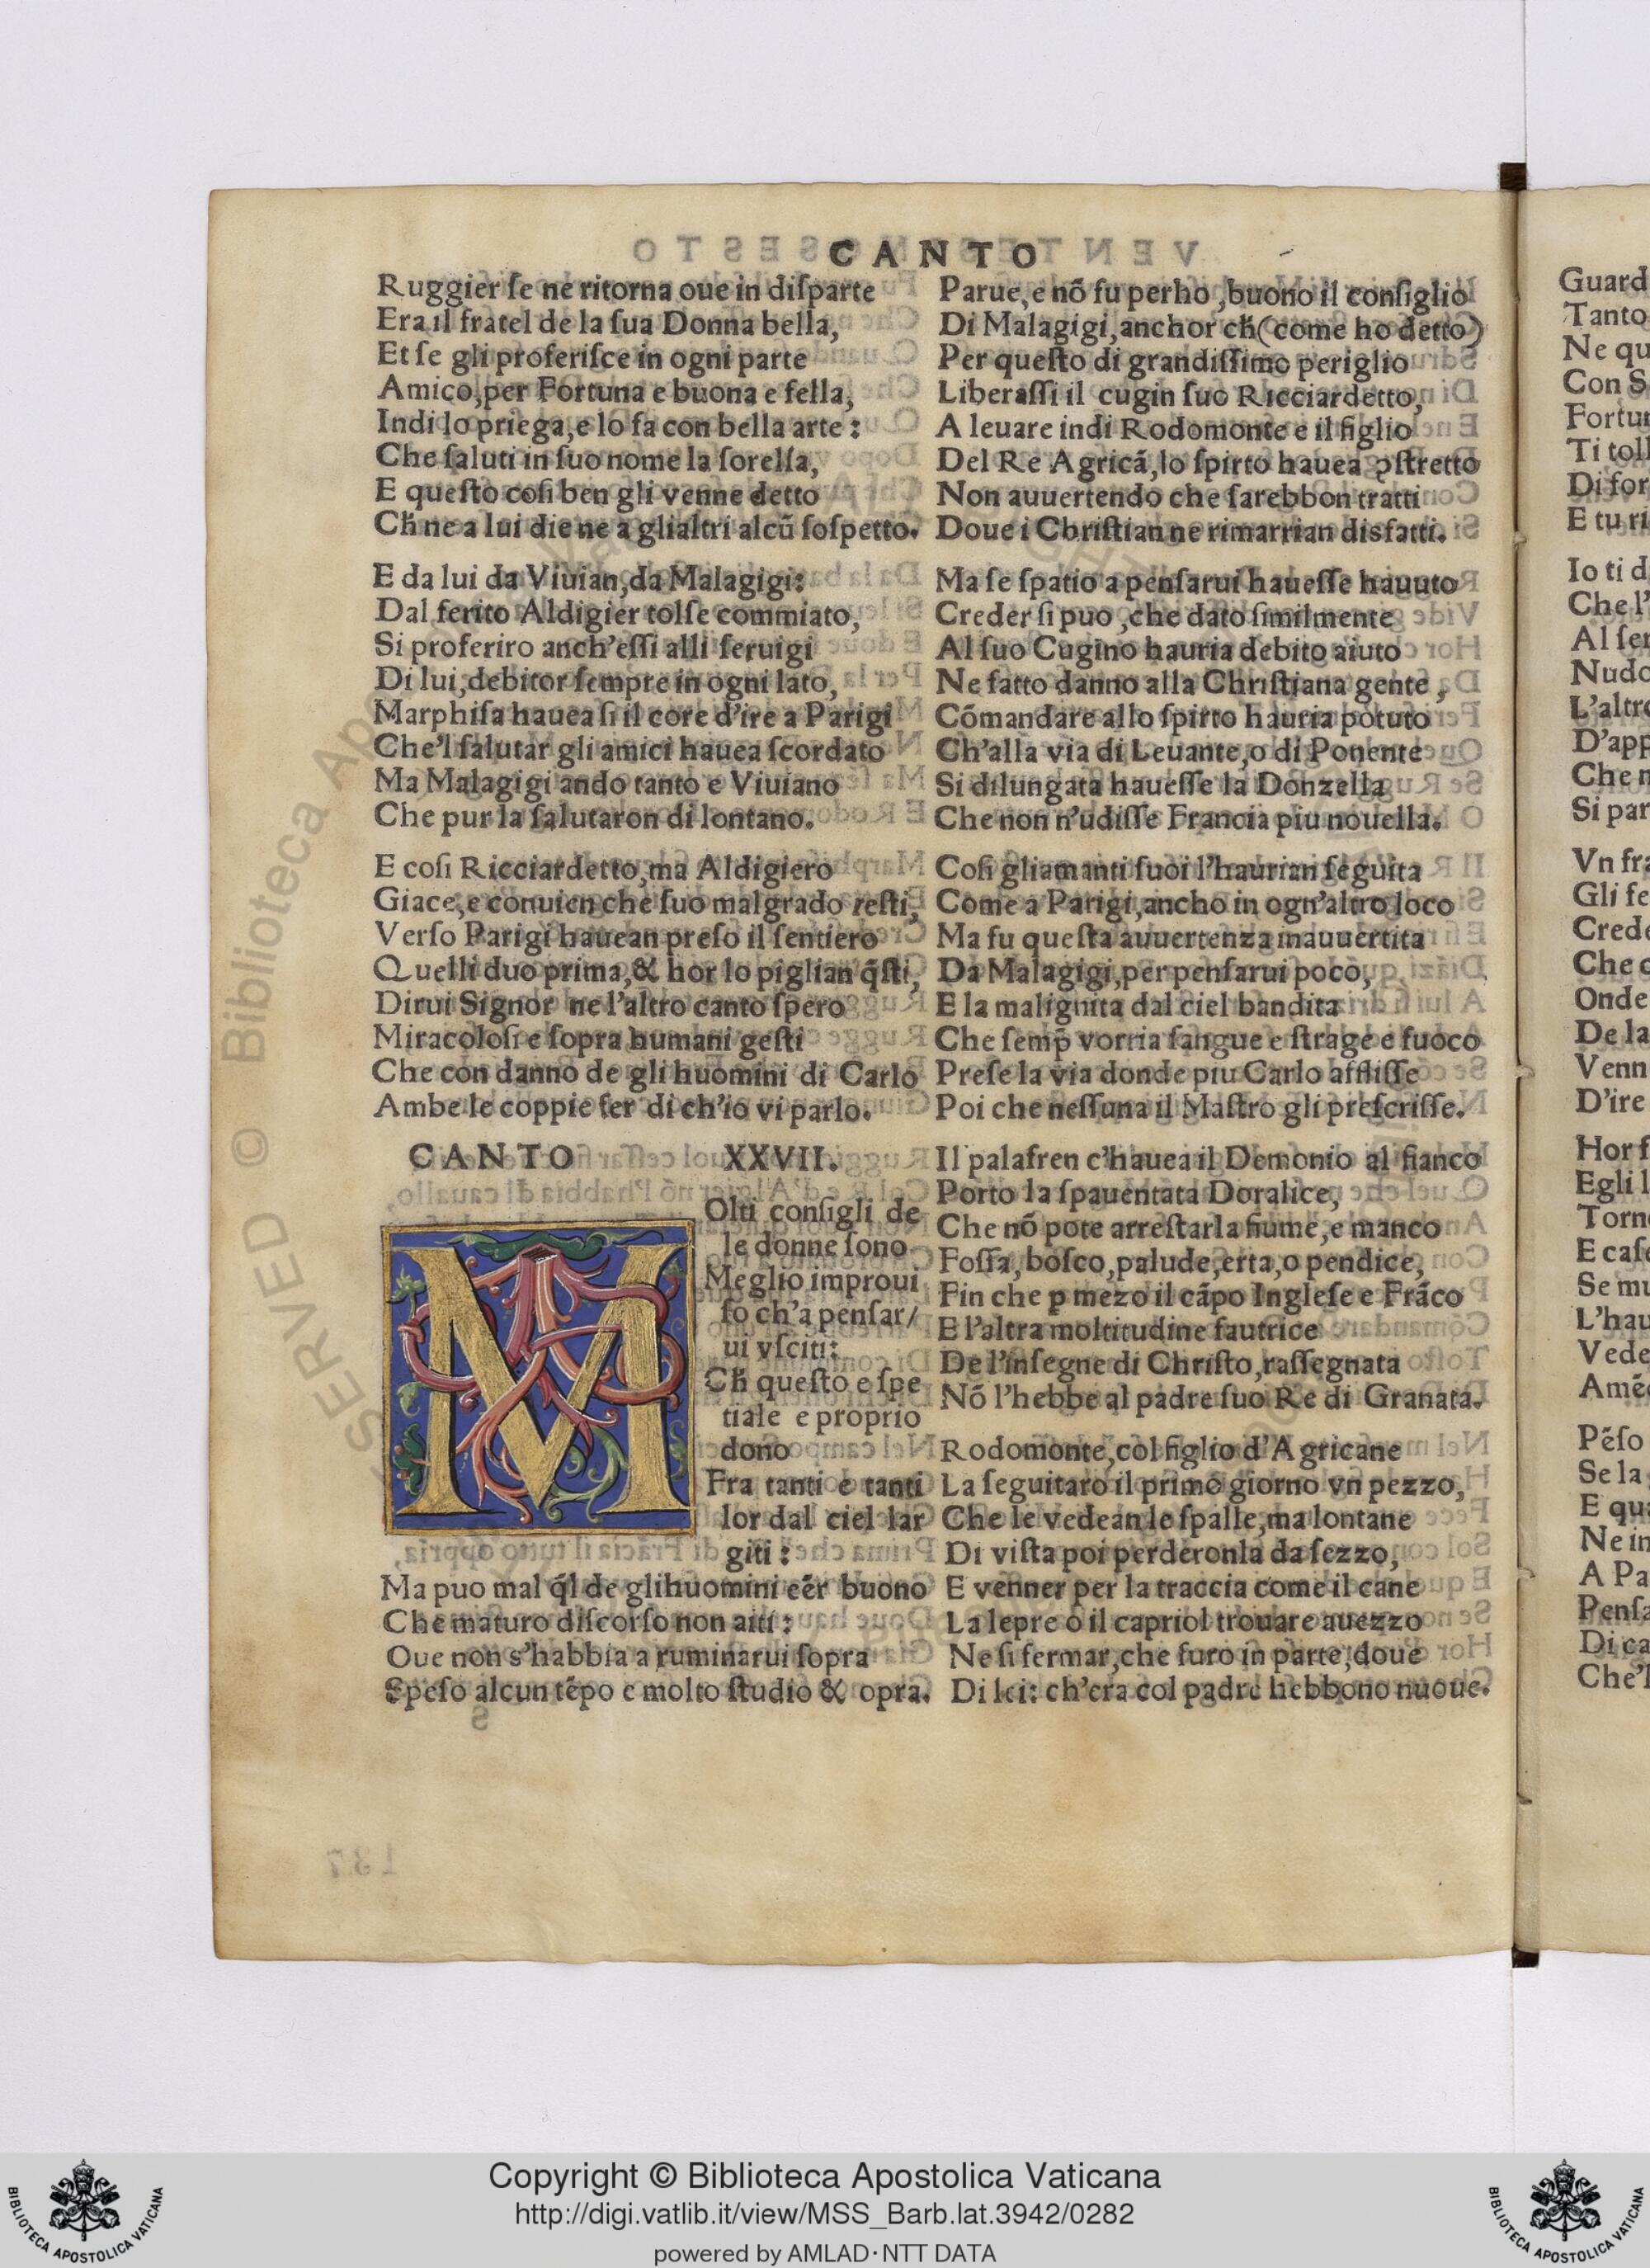 CANTO
Ruggier ſe ne ritorna oue in diſparte
Era il fratel de la ſua Donna bella,
Et ſe gli proferiſce in ogni parte
Amico, per Fortuna e buona e fella,
Indi lo priega, e lo fa con bella arte:
Che ſaluti in ſuo nome la ſorella,
E queſto coſi ben gli venne detto
Cħ ne a lui die ne a glialtri alcũ ſoſpetto.
E da lui da Viuian, da Malagigi:
Dal ferito Aldigier tolſe commiato,
Si proferiro anch'eſſi alli ſeruigi
Di lui, debitor ſempre in ogni lato,
Marphiſa hauea ſi il core d'ire a Parigi
Che'l ſalutar gli amici hauea ſcordato
Ma Malagigi ando tanto e Viuiano
Che pur la ſalutaron di lontano.
E coſi Ricciardetto, ma Aldigiero
Giace, e conuien che ſuo malgrado reſti,
Verſo Parigi hauean preſo il ſentiero
Quelli duo prima, & hor lo piglian q̃ſti,
Dirui Signor ne l'altro canto ſpero
Miracoloſi e ſopra humani geſti
Che con danno de gli huomini di Carlo
Ambe le coppie fer di ch'io vi parlo.
CANTO XXVII.
M
Olti conſigli de
le donne ſono
Meglio improui
ſo ch'a penſar/
ui vſciti:
Cħ queſto e ſpe
tiale e proprio
dono
Fra tanti e tanti
lor dal ciel lar
giti:
Ma puo mal q̃l de glihuomini eẽr buono
Che maturo diſcorſo non aiti:
Oue non s'habbia a ruminarui ſopra
Speſo alcun tẽpo e molto ſtudio & opra.
Parue, e nõ fu perho, buono il conſiglio
Di Malagigi, anchor cħ (come ho detto)
Per queſto di grandiſſimo periglio
Liberaſſi il cugin ſuo Ricciardetto,
A leuare indi Rodomonte e il figlio
Del Re Agricã, lo ſpirto hauea ꝯſtretto
Non auuertendo che ſarebbon tratti
Doue i Chriſtian ne rimarrian disfatti.
Ma ſe ſpatio a penſarui haueſſe hauuto
Creder ſi puo, che dato ſimilmente
Al ſuo Cugino hauria debito aiuto
Ne fatto danno alla Chriſtiana gente,
Cõmandare allo ſpirto hauria potuto
Ch'alla via di Leuante, o di Ponente
Si dilungata haueſſe la Donzella
Che non n'udiſſe Francia piu nouella.
Coſi gliamanti ſuoi l'haurian ſeguita
Come a Parigi, ancho in ogn'altro loco
Ma fu queſta auuertenza inauuertita
Da Malagigi, per penſarui poco,
E la malignita dal ciel bandita
Che ſemp̃ vorria ſangue e ſtrage e fuoco
Preſe la via donde piu Carlo affliſſe
Poi che neſſuna il Maſtro gli preſcriſſe.
Il palafren c'hauea il Demonio al fianco
Porto la ſpauentata Doralice,
Che nõ pote arreſtarla fiume, e manco
Foſſa, boſco, palude, erta, o pendice,
Fin che ꝑ mezo il cãpo Ingleſe e Frãco
E l'altra moltitudine fautrice
De l'inſegne di Chriſto, raſſegnata
Nõ l'hebbe al padre ſuo Re di Granata.
Rodomonte, col figlio d'Agricane
La ſeguitaro il primo giorno vn pezzo,
Che le vedean le ſpalle, ma lontane
Di viſta poi perderonla da ſezzo,
E venner per la traccia come il cane
La lepre o il capriol trouare auezzo
Ne ſi fermar, che furo in parte, doue
Di lei: ch'era col padre hebbono nuoue.
Copyright © Biblioteca Apostolica Vaticana
http://digi.vatlib.it/view/MSS_Barb.lat.3942/0282
powered by AMLAD·NTT DATA
BIBLIOTECA APOSTOLICA VATICANA
BIBLIOTECA APOSTOLICA VATICANA